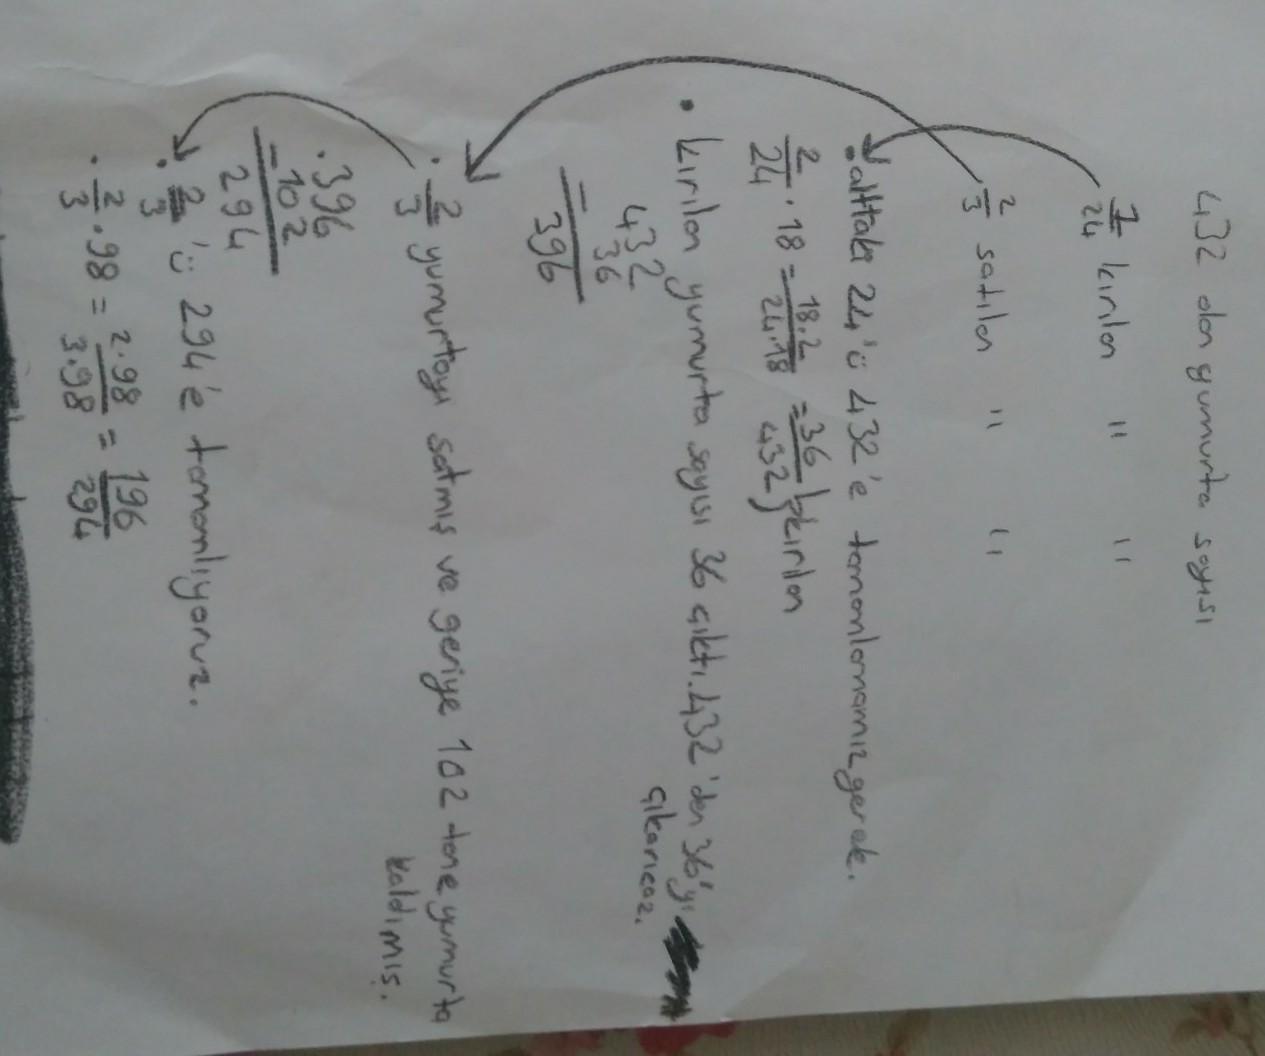 432 olan yumurta sayısı
2/24 kırılan " "
2/3 satılan " "
• alttaki 24'ü 432'e tamamlamamız gerek.
2/24 · 18 = 18.2/24.18 = 36/432 } kırılan
• kırılan yumurta sayısı 36 çıktı. 432'den 36'yı
çıkarıcaz.
432
36
—
396
• 2/3 yumurtayı satmış ve geriye 102 tane yumurta
kaldımış.
• 396
-102
294
• 2/3 'ü 294'e tamamlıyoruz.
• 2/3 · 98 = 2.98/3.98 = 196/294